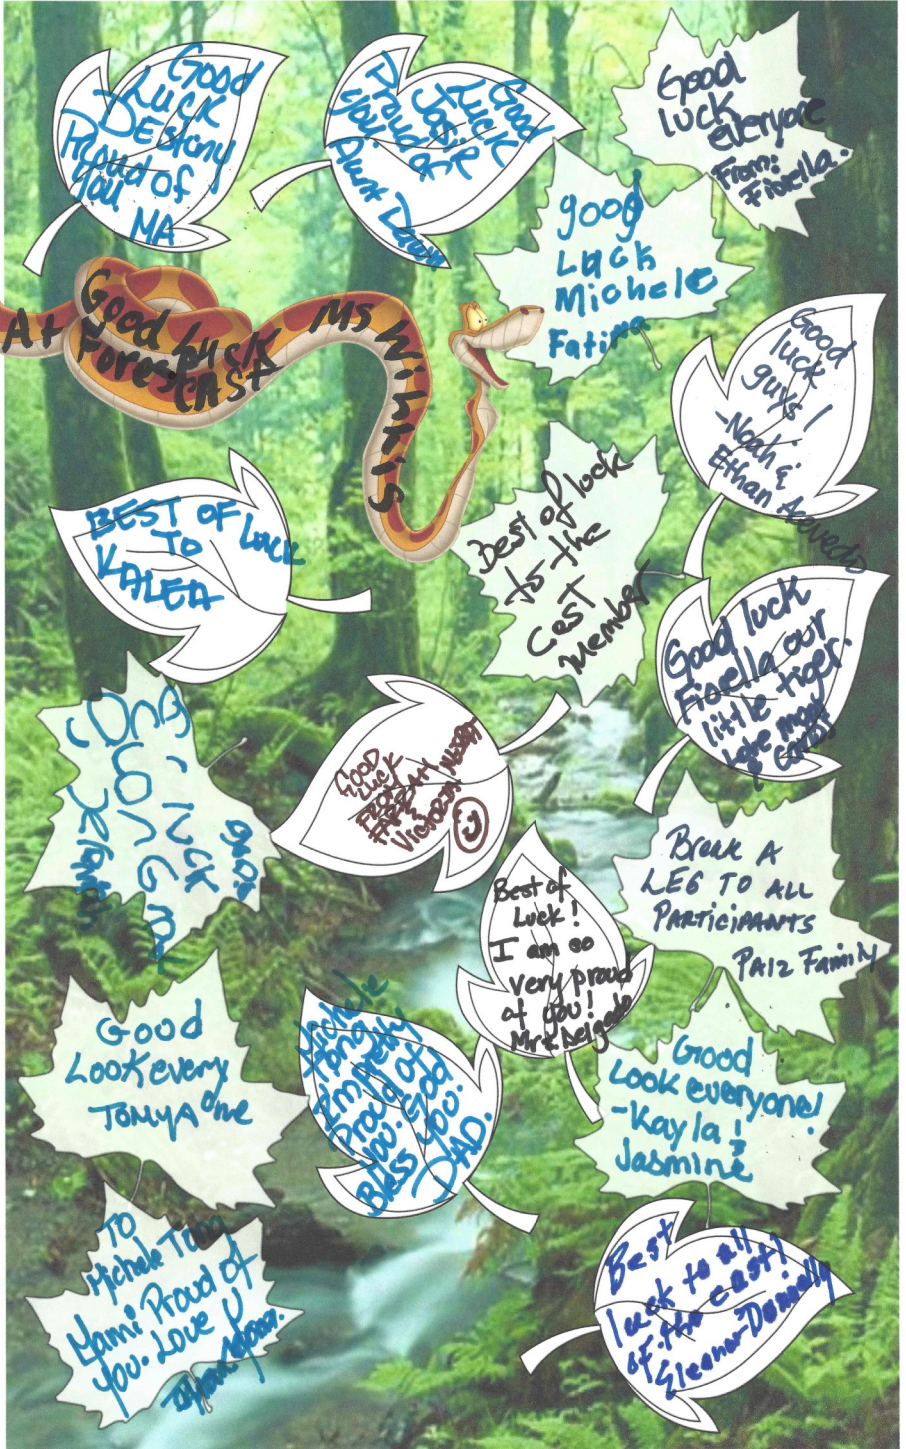 Good
Luck
DEStiny
Proud of
You MA
Good
Luck
Josie
Proud of
you.
Aunt
Good
luck
everyone
From:
Fiorella.
good
Luck
Michele
Fatima
At
Good Luck
Forest
CAST
Ms
Good
luck
guys!
-Noah &
Ethan Acevedo
BEST OF Luck
TO
KALEA
Best of luck
to the
CaST
Member
Good luck
Fiorella our
little tiger.
Love mom
GOOD
LUCK
FROM
Break A
LEG TO ALL
PARTICIPANTS
PAIZ Family
Best of
Luck!
I am so
very proud
of you!
Mrs. Delgado
Good
Look every
one
Michele
Tong
I'm very
Proud of
You. God
Bless You.
DAD.
Good
Look everyone!
-Kayla &
Jasmine
TO
Michele Tong
Mami Proud of
You. Love U
Best
luck to all
of the cast!
Eleanor Donnelly